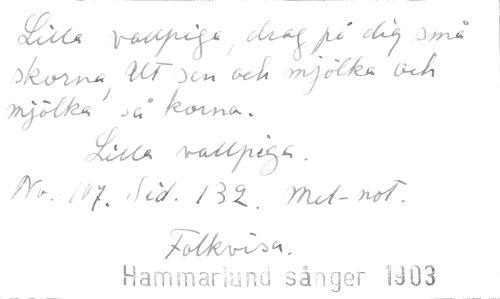 Lilla vallpiga, drag på dig små
skorna, Ut sen och mjölka och
mjölka så korna.
Lilla vallpiga.
No. 107. Sid. 132. Mel-not.
Folkvisa.
Hammarlund sånger 1903